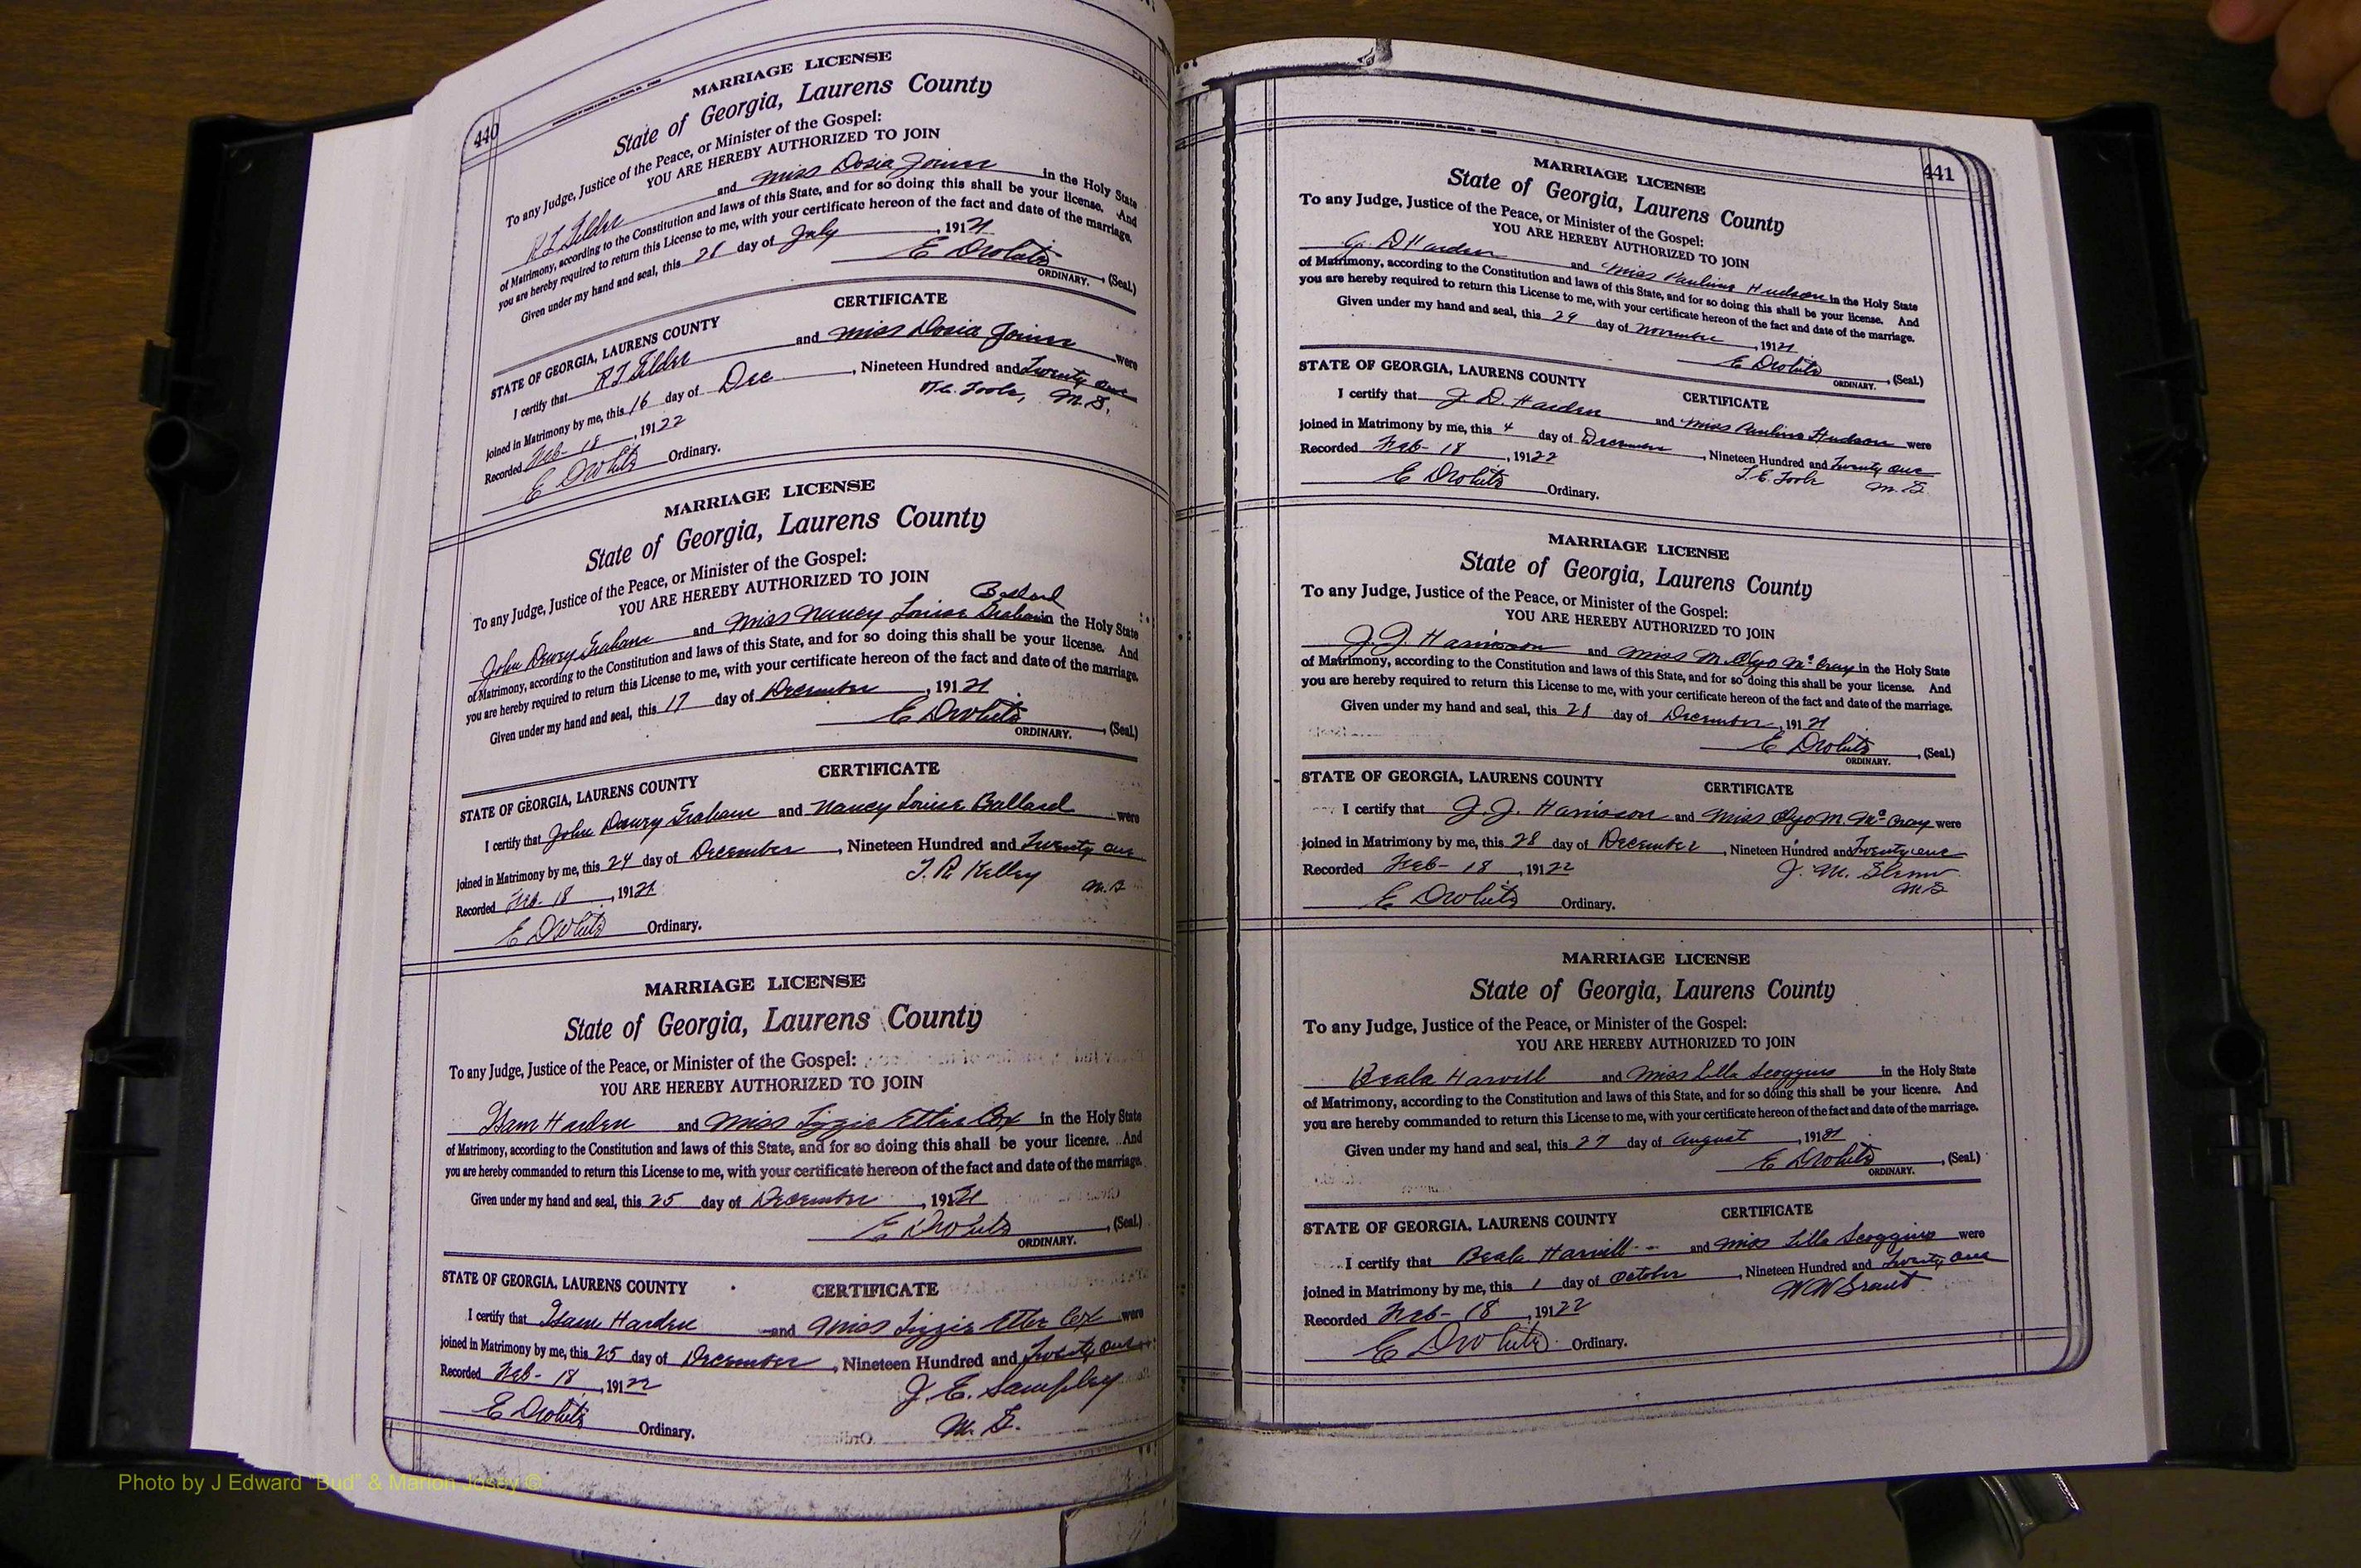 440
MARRIAGE LICENSE
State of Georgia, Laurens County
To any Judge, Justice of the Peace, or Minister of the Gospel:
YOU ARE HEREBY AUTHORIZED TO JOIN
and Miss Dosia Joiner in the Holy State
of Matrimony, according to the Constitution and laws of this State, and for so doing this shall be your license. And
you are hereby required to return this License to me, with your certificate hereon of the fact and date of the marriage.
Given under my hand and seal, this 28 day of July, 19121
E D White, (Seal.)
ORDINARY.
CERTIFICATE
STATE OF GEORGIA, LAURENS COUNTY
I certify that and Miss Dosia Joiner were
joined in Matrimony by me, this 16 day of Dec, Nineteen Hundred and Twenty one
Recorded Feb- 18, 19122 Toole, M.G.
E D White Ordinary.
MARRIAGE LICENSE
State of Georgia, Laurens County
To any Judge, Justice of the Peace, or Minister of the Gospel:
YOU ARE HEREBY AUTHORIZED TO JOIN
Ballard
John Dewry Graham and Miss Nancy Louise Graham in the Holy State
of Matrimony, according to the Constitution and laws of this State, and for so doing this shall be your license. And
you are hereby required to return this License to me, with your certificate hereon of the fact and date of the marriage.
Given under my hand and seal, this 17 day of December, 19121
E D White, (Seal.)
ORDINARY.
CERTIFICATE
STATE OF GEORGIA, LAURENS COUNTY
I certify that John Dewry Graham and Nancy Louise Ballard were
joined in Matrimony by me, this 24 day of December, Nineteen Hundred and Twenty one
Recorded Feb- 18, 191 J. R. Kelley M.G.
E D White Ordinary.
MARRIAGE LICENSE
State of Georgia, Laurens County
To any Judge, Justice of the Peace, or Minister of the Gospel:
YOU ARE HEREBY AUTHORIZED TO JOIN
Isam Harden and Miss Lizzie Etter Cox in the Holy State
of Matrimony, according to the Constitution and laws of this State, and for so doing this shall be your license. And
you are hereby commanded to return this License to me, with your certificate hereon of the fact and date of the marriage.
Given under my hand and seal, this 25 day of December, 19121
E D White, (Seal.)
ORDINARY.
STATE OF GEORGIA, LAURENS COUNTY CERTIFICATE
I certify that Isam Harden and Miss Lizzie Etter Cox were
joined in Matrimony by me, this 25 day of December, Nineteen Hundred and Twenty one
Recorded Feb- 18, 19122 J. E. Sampley
E D White Ordinary. M. G.
441
MARRIAGE LICENSE
State of Georgia, Laurens County
To any Judge, Justice of the Peace, or Minister of the Gospel:
YOU ARE HEREBY AUTHORIZED TO JOIN
D Harden and Miss Pauline Hudson in the Holy State
of Matrimony, according to the Constitution and laws of this State, and for so doing this shall be your license. And
you are hereby required to return this License to me, with your certificate hereon of the fact and date of the marriage.
Given under my hand and seal, this 29 day of November, 19121
E D White, (Seal.)
ORDINARY.
STATE OF GEORGIA, LAURENS COUNTY CERTIFICATE
I certify that J. D. Harden and Miss Pauline Hudson were
joined in Matrimony by me, this 4 day of December, Nineteen Hundred and Twenty one
Recorded Feb- 18, 19122 T. E. Toole M.G.
E D White Ordinary.
MARRIAGE LICENSE
State of Georgia, Laurens County
To any Judge, Justice of the Peace, or Minister of the Gospel:
YOU ARE HEREBY AUTHORIZED TO JOIN
J. J. Harrison and Miss M. Olyo McCray in the Holy State
of Matrimony, according to the Constitution and laws of this State, and for so doing this shall be your license. And
you are hereby required to return this License to me, with your certificate hereon of the fact and date of the marriage.
Given under my hand and seal, this 28 day of December, 19121
E D White, (Seal.)
ORDINARY.
STATE OF GEORGIA, LAURENS COUNTY CERTIFICATE
I certify that J. J. Harrison and Miss Olyo M. McCray were
joined in Matrimony by me, this 28 day of December, Nineteen Hundred and Twenty one
Recorded Feb- 18, 19122 J. M.
M G
E D White Ordinary.
MARRIAGE LICENSE
State of Georgia, Laurens County
To any Judge, Justice of the Peace, or Minister of the Gospel:
YOU ARE HEREBY AUTHORIZED TO JOIN
Beala Harvill and Miss Lilla Scoggins in the Holy State
of Matrimony, according to the Constitution and laws of this State, and for so doing this shall be your license. And
you are hereby commanded to return this License to me, with your certificate hereon of the fact and date of the marriage.
Given under my hand and seal, this 27 day of August, 19121
E D White, (Seal.)
ORDINARY.
STATE OF GEORGIA, LAURENS COUNTY CERTIFICATE
I certify that Beala Harvill and Miss Lilla Scoggins were
joined in Matrimony by me, this 1 day of October, Nineteen Hundred and Twenty one
Recorded Feb- 18, 19122 W W Grant
E D White Ordinary.
Photo by J Edward "Bud" & Marion Josey ©